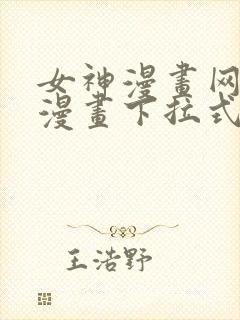 女神漫畫网
漫畫下拉式
王浩野